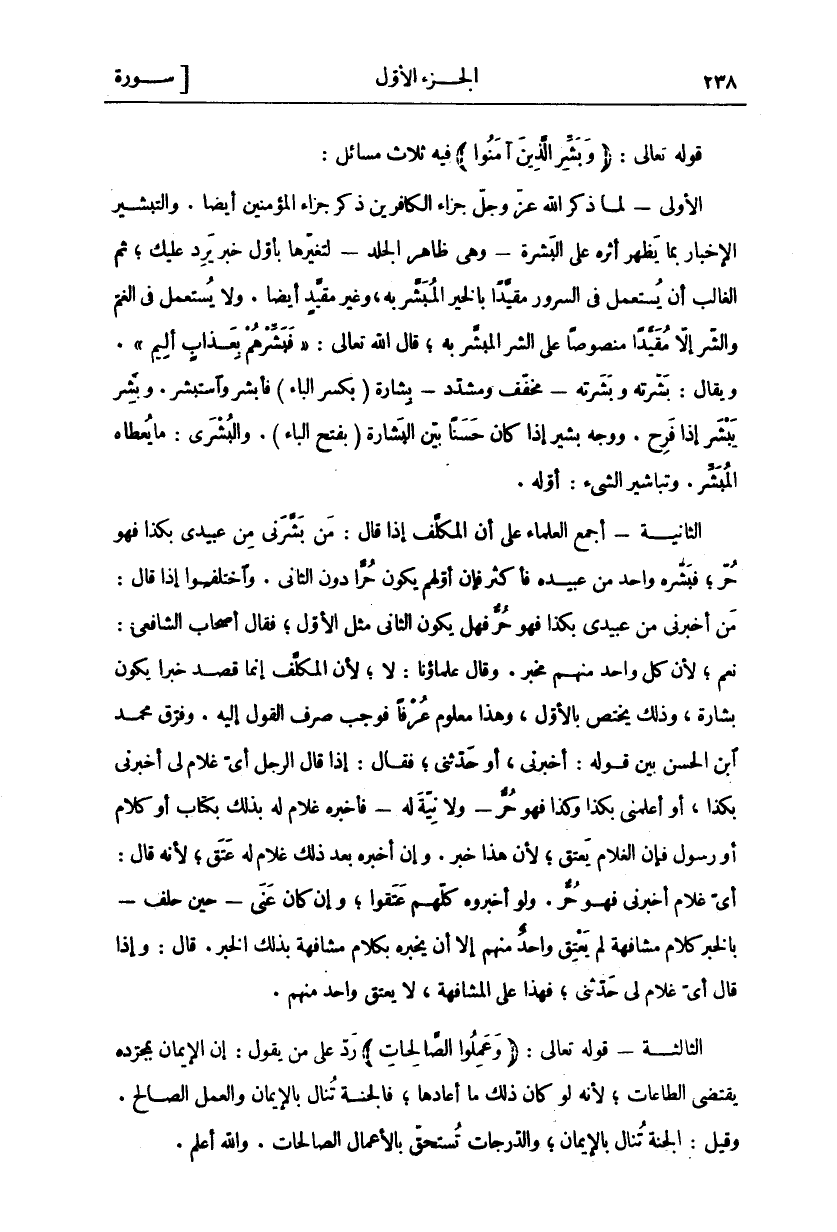 ٢٣٨ الجـــزء الأوّل [ ســـورة
قوله تعالى : ﴿ وَبَشِّرِ الَّذِينَ آمَنُوا ﴾ فيه ثلاث مسائل :
الأولى — لما ذكر الله عزّ وجلّ جزاء الكافرين ذكر جزاء المؤمنين أيضا . والتبشــير
الإخبار بما يَظهر أثره على البَشرة — وهى ظاهر الجلد — لتغيّرها بأوّل خبر يَرِد عليك ؛ ثم
الغالب أن يُستعمل فى السرور مقيَّدًا بالخير المُبَشَّر به، وغير مقيَّدٍ أيضا . ولا يُستعمل فى الغمّ
والشّر إلّا مُقَيَّدًا منصوصًا على الشر المبشَّر به ؛ قال الله تعالى : « فَبَشِّرْهُمْ بِعَـذابٍ أَلِيم » .
ويقال : بَشَرته وبَشّرته — مخفّف ومشدّد — بِشارة ( بكسر الباء ) فأبشر وٱستبشر . وبَشِر
يَبْشَر إذا فَرِح . ووجه بشير إذا كان حَسَنًا بيّن البَشارة ( بفتح الباء ) . والبُشْرَى : ما يُعطاه
المُبَشَّر . وتباشير الشىء : أوّله .
الثانيــة — أجمع العلماء على أن المكلَّف إذا قال : مَن بَشَّرَنى مِن عبيدى بكذا فهو
حُرّ ؛ فبَشَّره واحد من عبيـده فأكثر فإن أوّلهم يكون حُرًّا دون الثانى . وٱختلفـوا إذا قال :
مَن أخبرنى من عبيدى بكذا فهو حُرٌّ فهل يكون الثانى مثل الأوّل ؛ فقال أصحاب الشافعىّ :
نعم ؛ لأن كل واحد منهـم مخبر . وقال علماؤنا : لا ؛ لأن المكلَّف إنما قصـد خبرا يكون
بشارة ، وذلك يختص بالأوّل ، وهذا معلوم عُرْفاً فوجب صرف القول إليه . وفرّق محمـد
ٱبن الحسن بين قـوله : أخبرنى ، أو حَدّثنى ؛ فقـال : إذا قال الرجل أىّ غلام لى أخبرنى
بكذا ، أو أعلمنى بكذا وكذا فهو حُرٌّ — ولا نِيّةَ له — فأخبره غلام له بذلك بكتاب أو كلام
أو رسول فإن الغلام يَعتق ؛ لأن هذا خبر . وإن أخبره بعد ذلك غلام له عَتَق ؛ لأنه قال :
أىّ غلام أخبرنى فهـو حُرٌّ . ولو أخبروه كلّهـم عَتَقوا ؛ وإن كان عَنَى — حين حلف —
بالخبر كلام مشافهة لم يَعْتِق واحدٌ منهم إلا أن يخبره بكلام مشافهة بذلك الخبر . قال : وإذا
قال أىّ غلام لى حَدّثنى ؛ فهذا على المشافهة ، لا يعتق واحد منهم .
الثالثــة — قوله تعالى : ﴿ وَعَمِلُوا الصَّالِحَاتِ ﴾ رَدّ على من يقول : إن الإيمان بمجرّده
يقتضى الطاعات ؛ لأنه لو كان ذلك ما أعادها ؛ فالجنـة تُنال بالإيمان والعمل الصـالح .
وقيل : الجنة تُنال بالإيمان ؛ والدّرجات تُستحقّ بالأعمال الصالحات . والله أعلم .